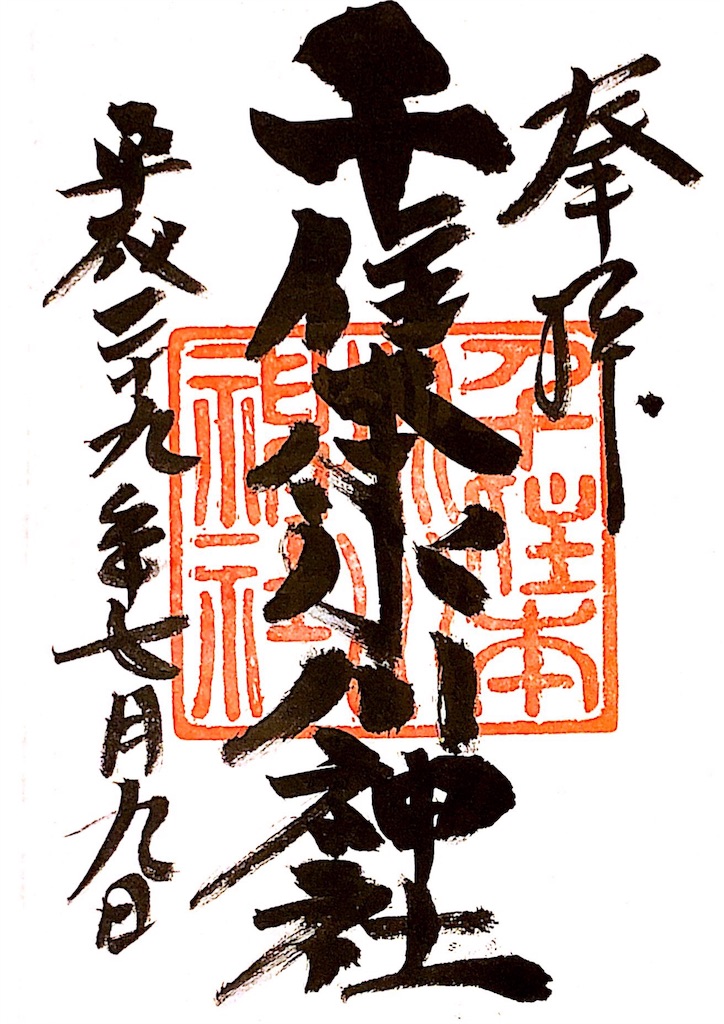 奉拝
千住本氷川神社
平成二十九年七月九日
千住本
氷川
神社